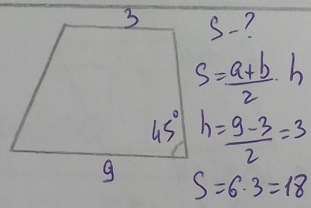 3
45°
9
S-?
S = a+b/2 · h
h = 9-3/2 = 3
S = 6·3 = 18